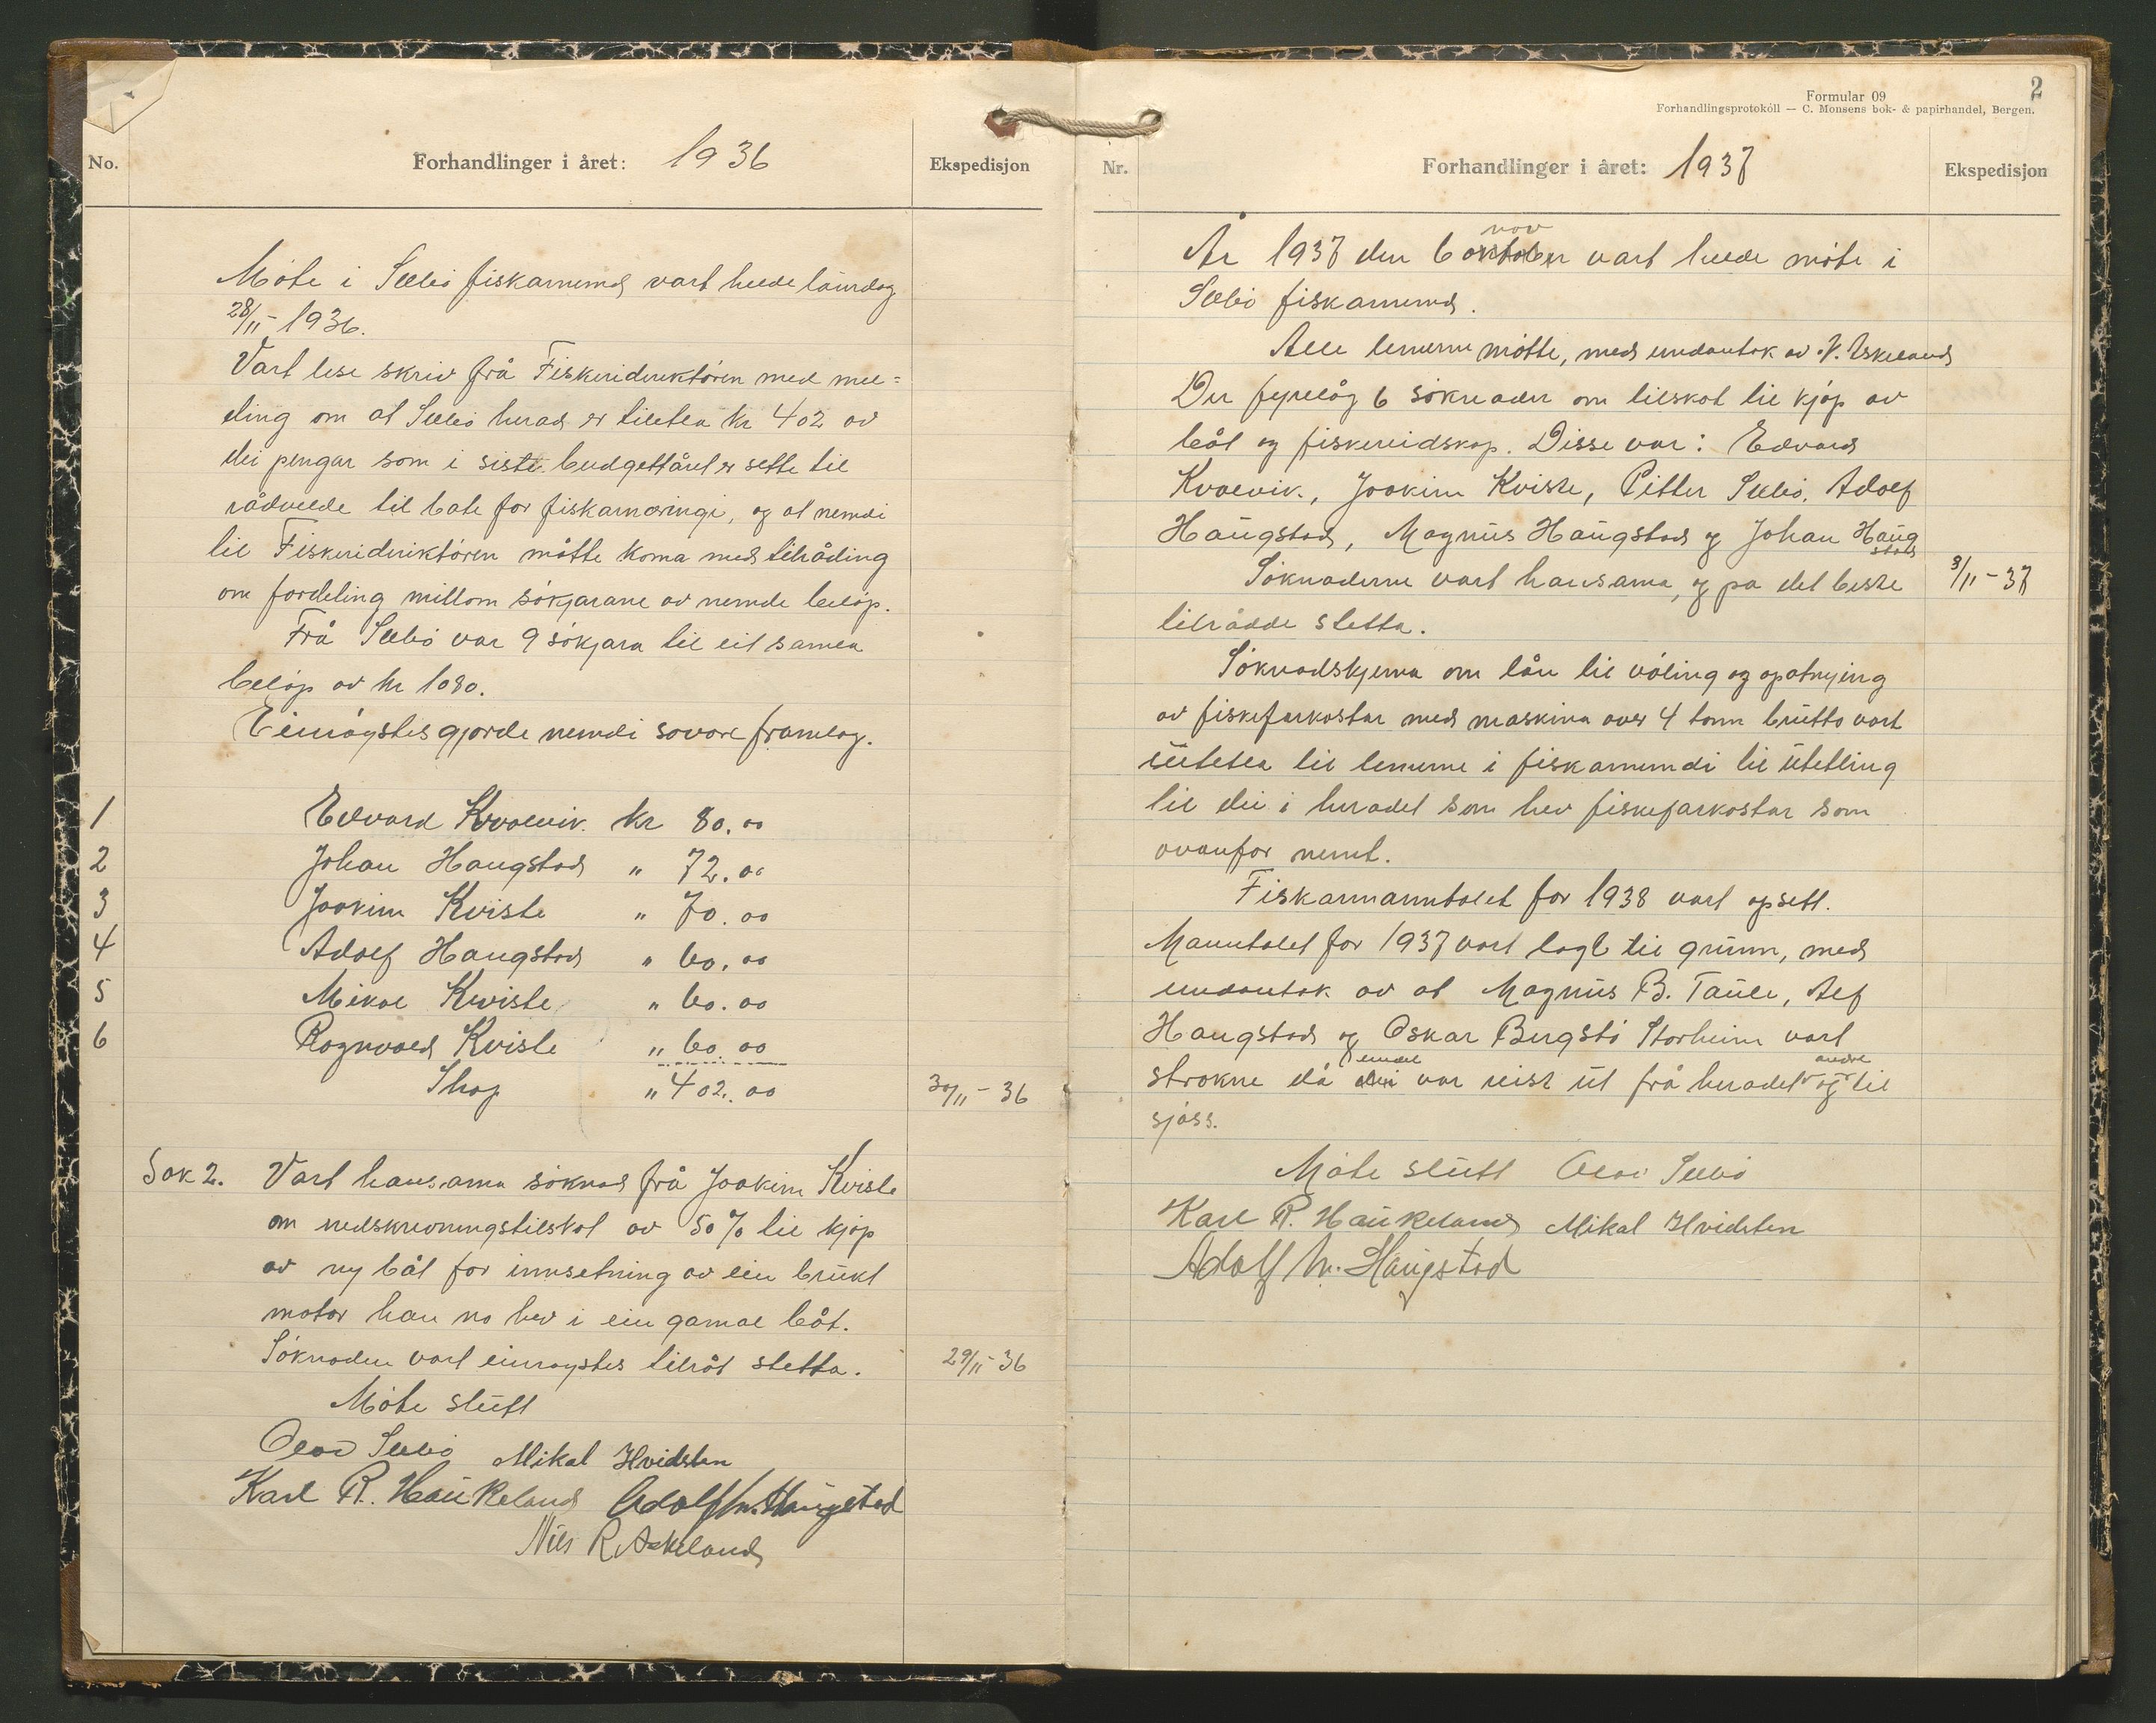 No.
Forhandlinger i året: 1936
Ekspedisjon
Møte i Sæbø fiskarnemd vart helde laurdag
28/11-1936.
Vart lese skriv frå Fiskeridirektøren med mel=
ding om at Sæbø herad er tiletla kr 402 av
dei pengar som i siste budgettåret er sette til
rådvelde til bate for fiskarnæringi, og at nemdi
til Fiskeridiriktøren måtte koma med tilråding
om fordeling millom søkjarane av nemde beløp.
Frå Sæbø var 9 søkjara til eit samla
beløp av kr 1080.
Einrøystes gjorde nemdi sovore framlag.
1 Edvard Kvalvik kr 80.00
2 Johan Haugstad " 72.00
3 Joakim Kviste " 70.00
4 Adolf Haugstad " 60.00
5 Mikal Kviste " 60.00
6 Ragnvald Kviste " 60.00
Ihop " 402.00
30/11-36
Sak 2. Vart hansama søknad frå Joakim Kviste
om nedskrivningstilskot av 50% til kjøp
av ny båt for innsetning av ein brukt
motor han no hev i ein gamal båt.
Søknaden vart einrøystes tilråt stetta.
29/11-36
Møte slutt
Olav Sæbø Mikal Hvidsten
Karl R. Haukeland Adolf M. Haugstad
Nils R. Askeland
2
Formular 09
Forhandlingsprotokoll — C. Monsens bok- & papirhandel, Bergen.
Nr.
Forhandlinger i året: 1937
Ekspedisjon
nov
År 1937 den 6 oktober vart helde møte i
Sæbø fiskarnemd.
Alle lemerne møtte, med undantak av N. Askeland
Der fyrelåg 6 søknader om tilskot til kjøp av
båt og fiskereidskap. Disse var: Edvard
Kvalvik, Joakim Kviste, Pitter Sæbø, Adolf
Haugstad, Magnus Haugstad og Johan Haug
stad
Søknaderne vart hansama, og pa det beste
8/11-37
tilrådde stetta.
Søknadskjema om lån til vøling og opatnying
av fiskefarkostar med maskina over 4 tonn brutto vart
utetla til lemerne i fiskarnemdi til utetling
til dei i heradet som hev fiskefarkostar som
ovanfor nemt.
Fiskarmanntalet for 1938 vart opsett.
Manntalet for 1937 vart lagt til grunn, med
undantak av at Magnus B. Taule, Alf
Haugstad og Oskar Bergstø Storheim vart
andre
strokne då dei var reist ut frå heradet og til
sjøss.
Møte slutt Olav Sæbø
Karl R. Haukeland Mikal Hvidsten
Adolf M. Haugstad